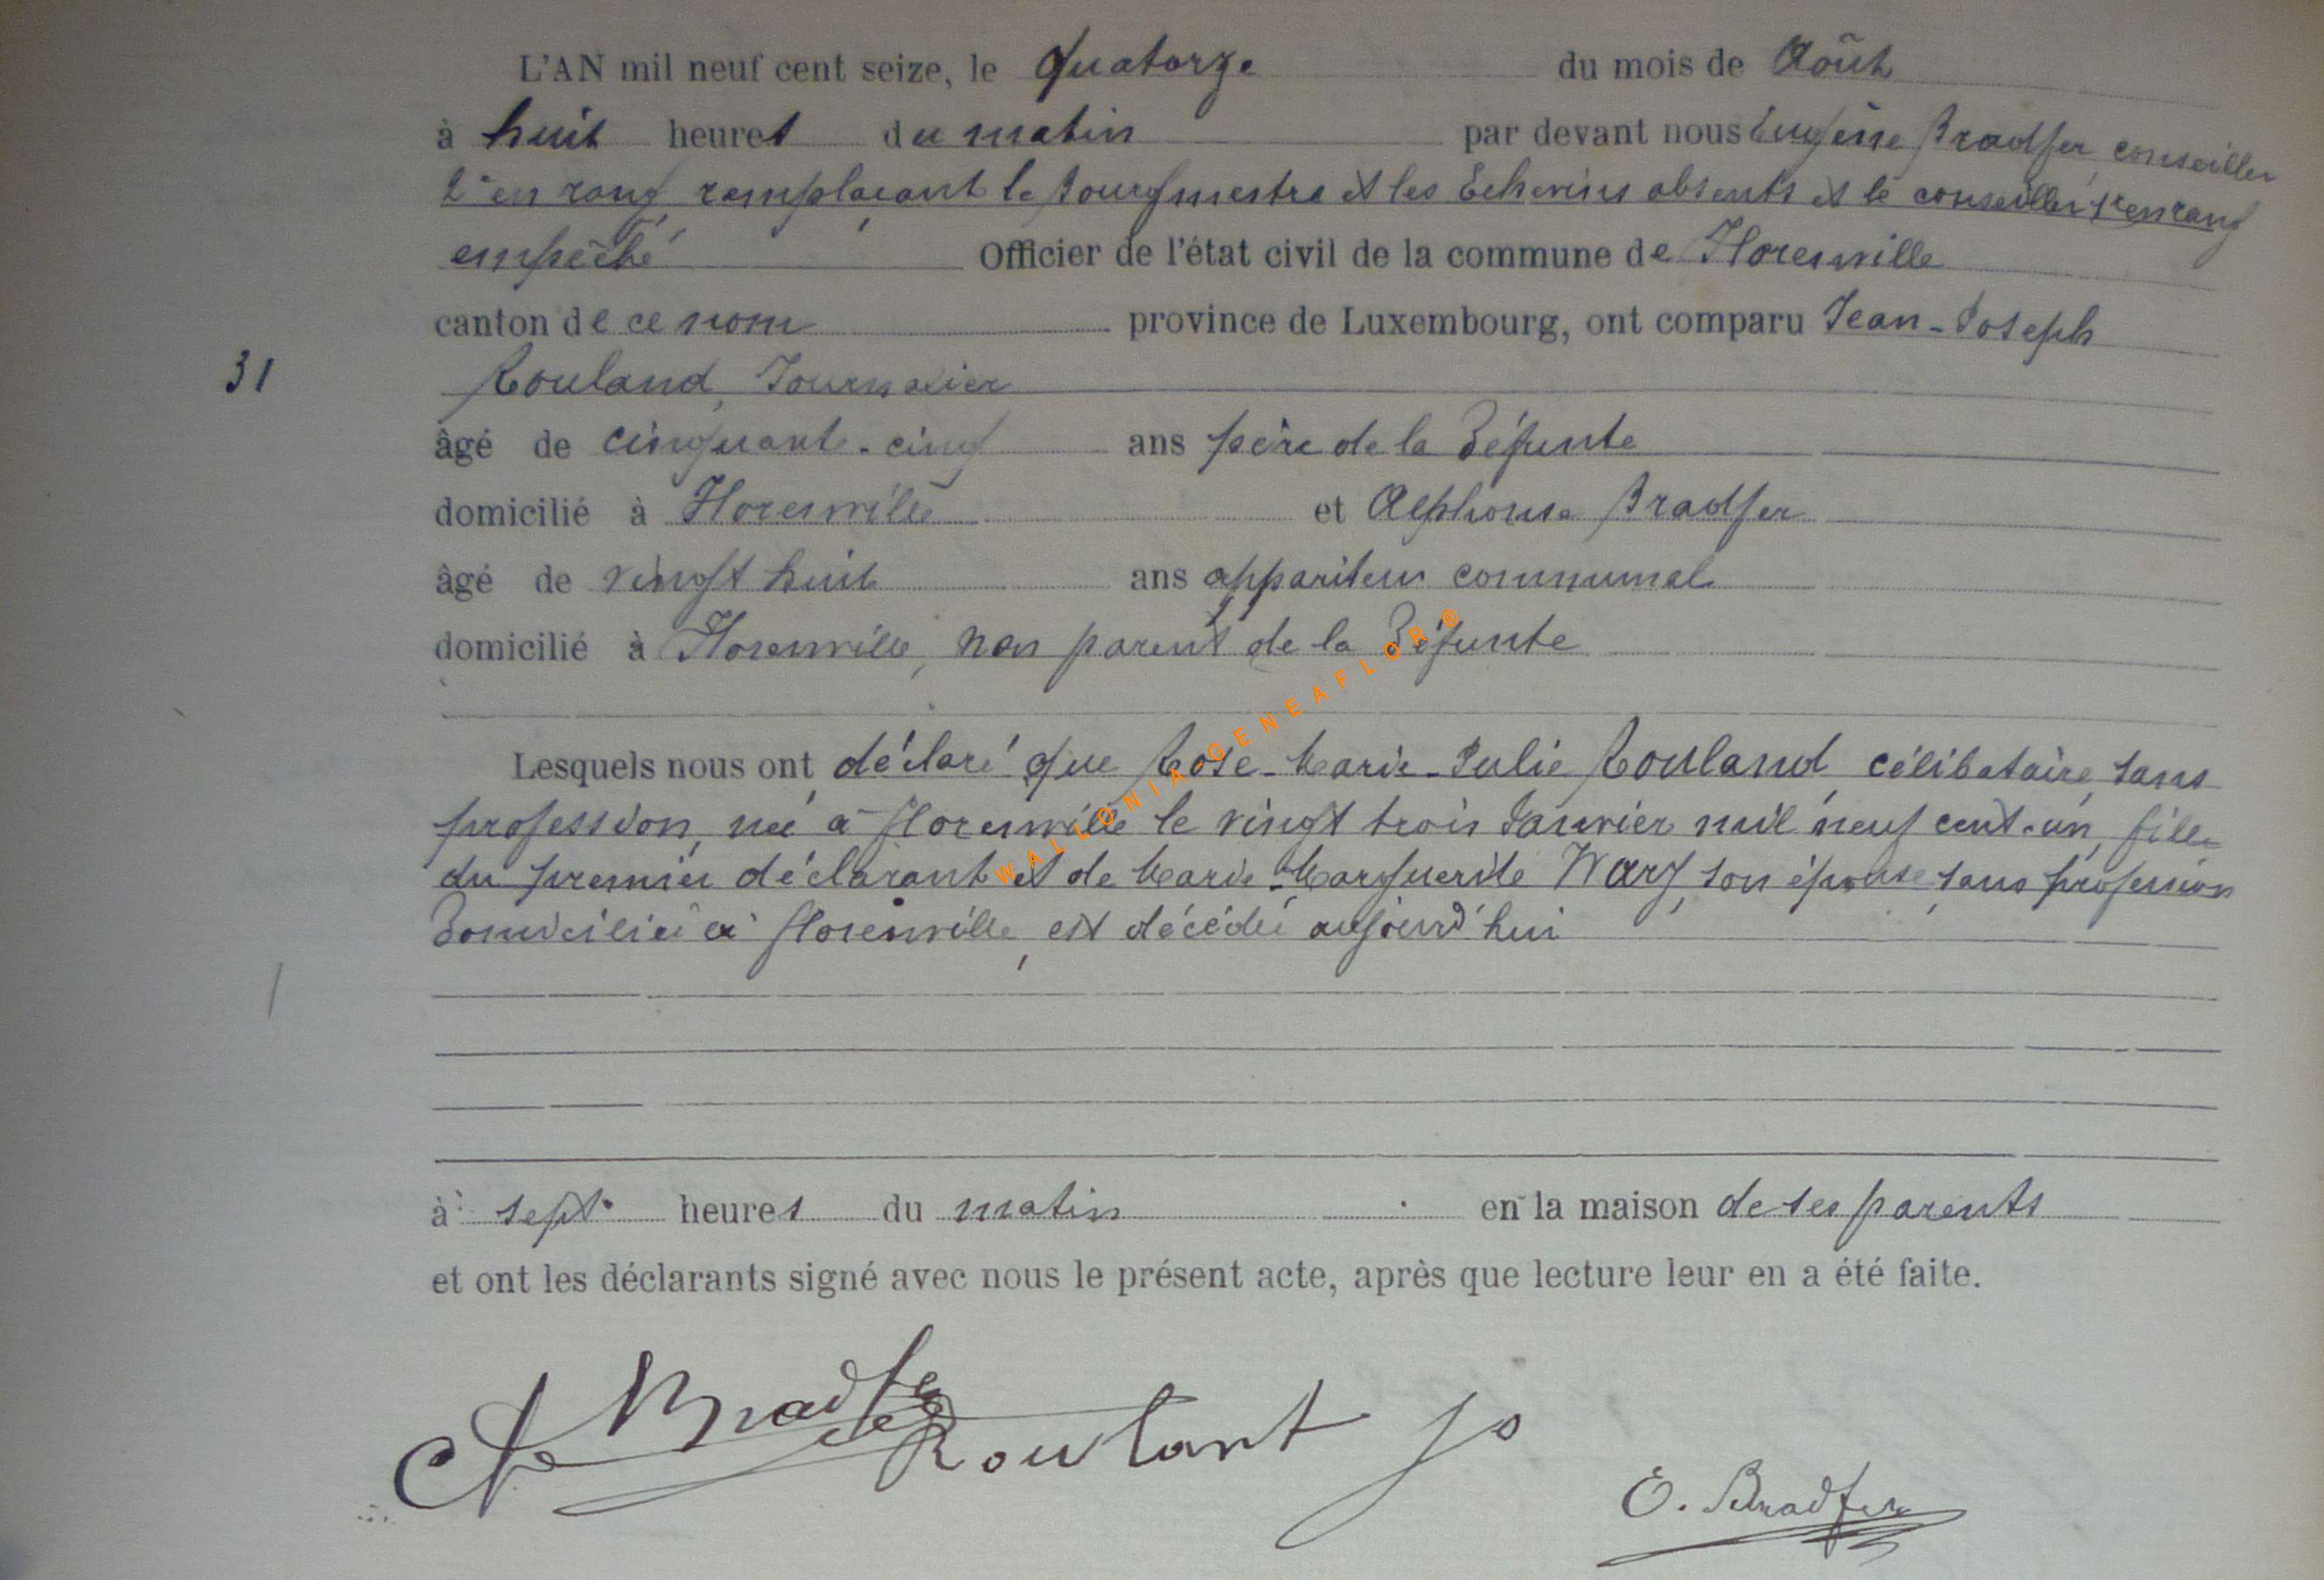 L'AN mil neuf cent seize, le quatorze du mois de Août
à huit heures du matin par devant nous Eugène Bradfer, conseiller
2e en rang remplaçant le Bourgmestre et les Echevins absents et le conseiller 1er en rang
empêché Officier de l'état civil de la commune de Florenville
canton de ce nom province de Luxembourg, ont comparu Jean-Joseph
31 Rouland, Journalier
âgé de cinquante-cinq ans père de la Défunte
domicilié à Florenville et Alphonse Bradfer
âgé de vingt huit ans appariteur communal
domicilié à Florenville, non parent de la Défunte
Lesquels nous ont déclaré que Rose-Marie-Julie Rouland, célibataire, sans
profession, née à Florenville le vingt trois Janvier mil neuf cent-un, fille
du premier déclarant et de Marie-Marguerite Warg, son épouse, sans profession
Domiciliée à Florenville, est décédée aujourd'hui
à sept heures du matin en la maison de ses parents
et ont les déclarants signé avec nous le présent acte, après que lecture leur en a été faite.
Bradfer
Roulant Jo
E. Bradfer
WALLONIA-GENEAFLOR®